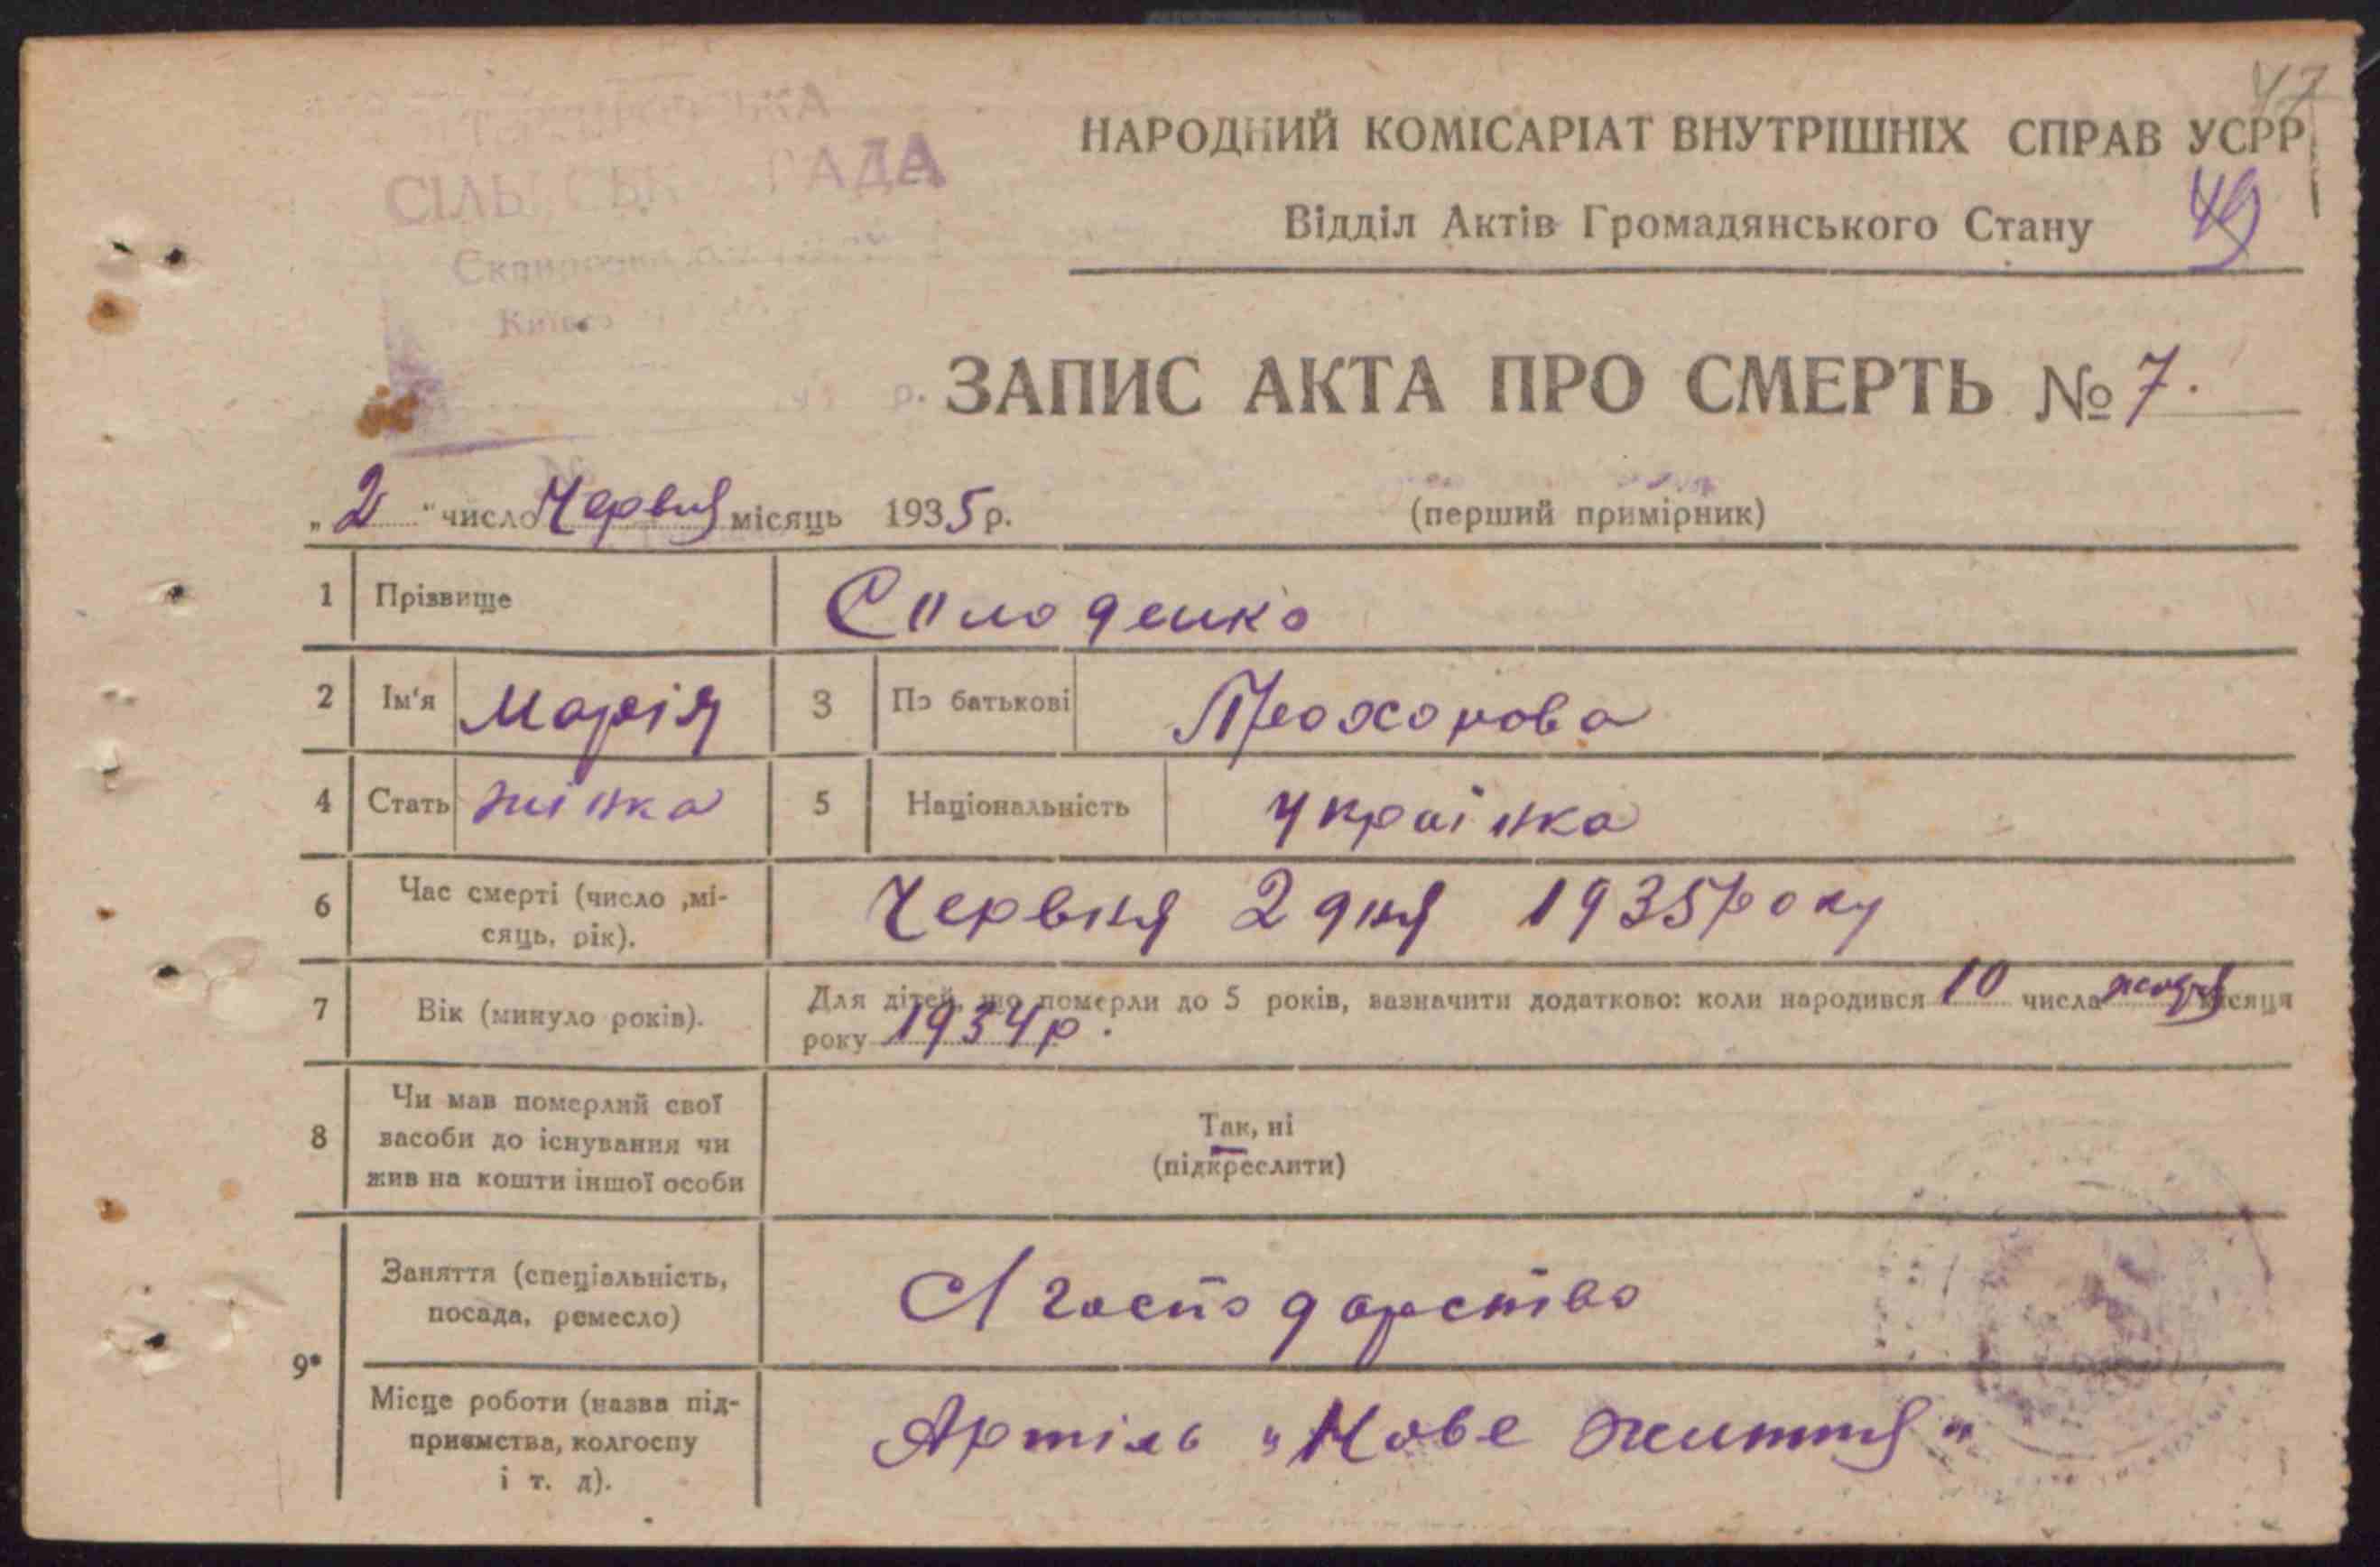 47
НАРОДНИЙ КОМІСАРІАТ ВНУТРІШНІХ СПРАВ УСРР
СІЛЬСЬК РАДА
Відділ Актів Громадянського Стану 49
ЗАПИС АКТА ПРО СМЕРТЬ № 7.
„2“ число Червня місяць 1935 р.
(перший примірник)
1 Прізвище Солоденко
2 Ім'я Марія 3 По батькові
4 Стать жінка 5 Національність українка
6 Час смерті (число ,мі-
сяць, рік).
Червня 2 дня 1935 року
7 Вік (минуло років).
Для дітей, що померли до 5 років, зазначити додатково: коли народився 10 числа жовтня місяця
року 1934 р.
8 Чи мав померлий свої
засоби до існування чи
жив на кошти іншої особи
Так, ні
(підкреслити)
9*
Заняття (спеціальність,
посада, ремесло)
С/господарство
Місце роботи (назва під-
приємства, колгоспу
і т. д).
Артіль „Нове життя"